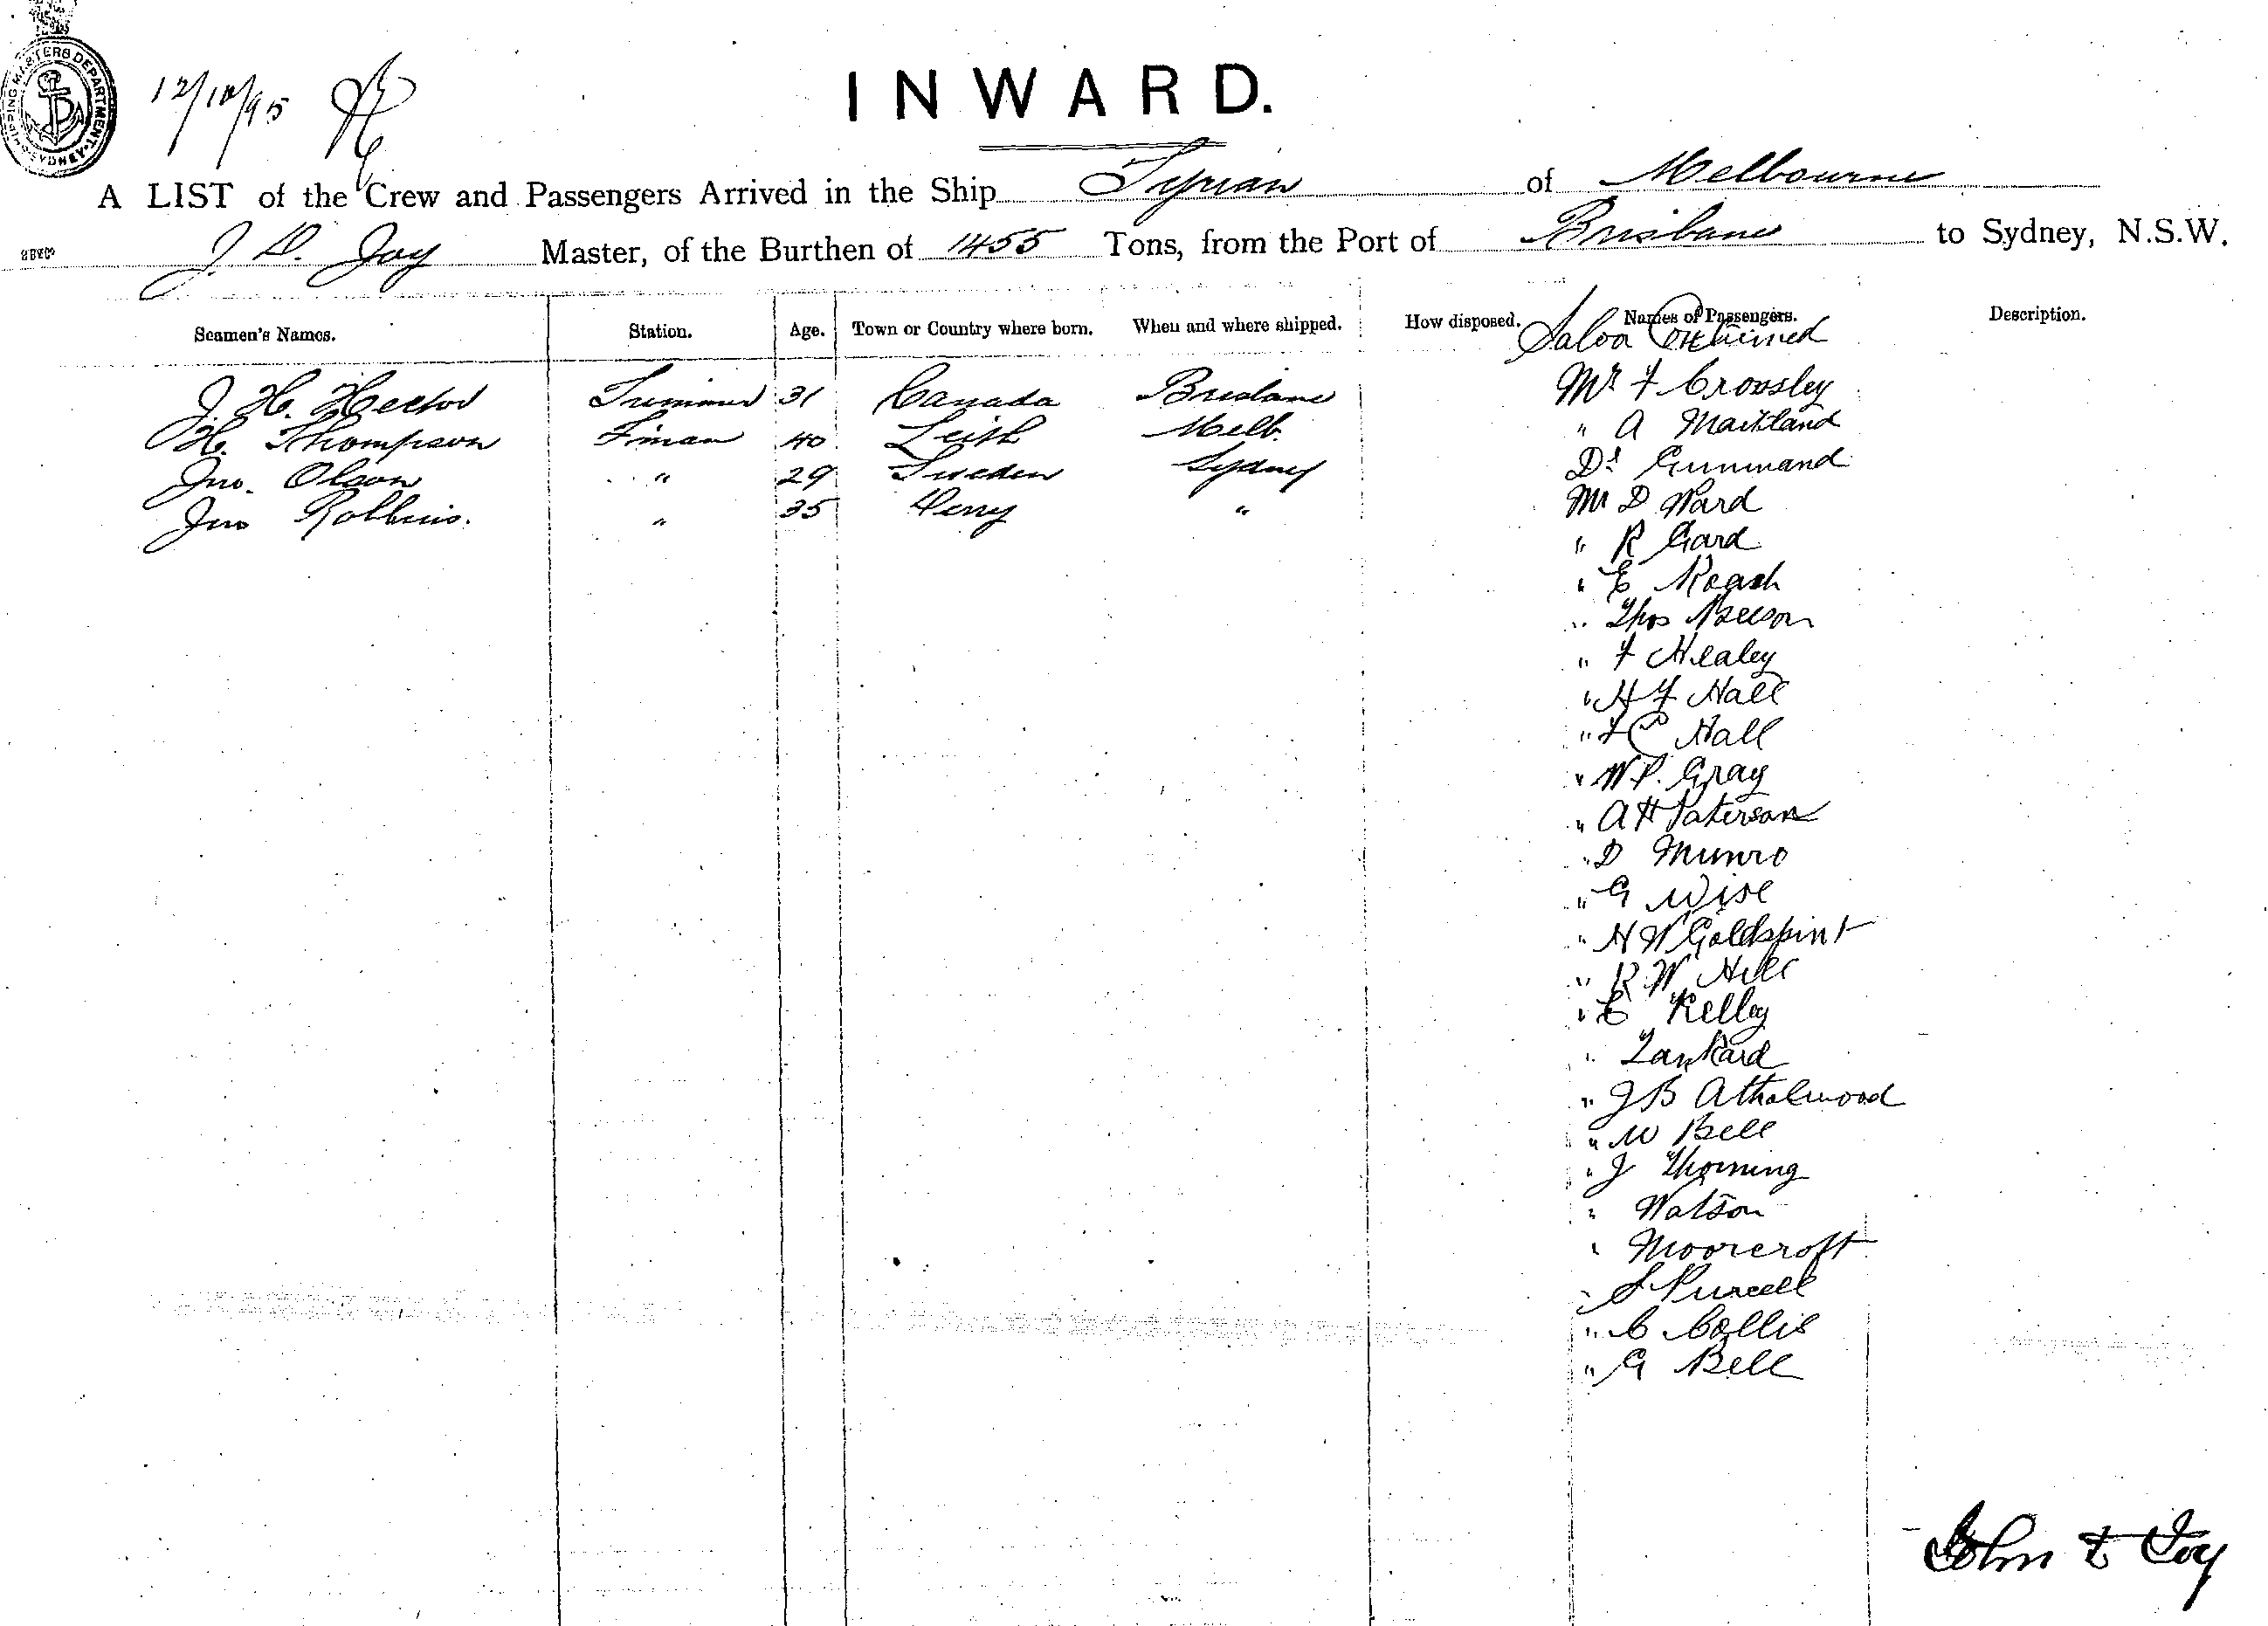 SHIPPING MASTERS DEPARTMENT SYDNEY
12/10/95
INWARD.
A LIST of the Crew and Passengers Arrived in the Ship Tyrian of Melbourne
J. D. Joy Master, of the Burthen of 1455 Tons, from the Port of Brisbane to Sydney, N.S.W.
Seamen's Names. Station. Age. Town or Country where born. When and where shipped. How disposed. Names of Passengers. Description.
Saloon Continued
J. H. Hector Trimmer 31 Canada Brisbane Mr F Crossley
H. Thompson Fireman 40 Leith Melb. " A Maitland
Jno. Olson " 29 Sweden Sydney Dr
Jno Robbins. " 35 Derry " Mr D Ward
" R Gard
" E Roach
" Thos Beeson
" F Healey
" H F Hall
" F C Hall
" W P. Gray
" A H Paterson
" D Munro
" G Wise
" H W Goldspint
" R W Hill
" E Kelley
" Tankard
" J B Atholwood
" W Bell
" J Thorning
" Watson
" Moorcroft
" S Purcell
" C Collis
" G Bell
John D Joy